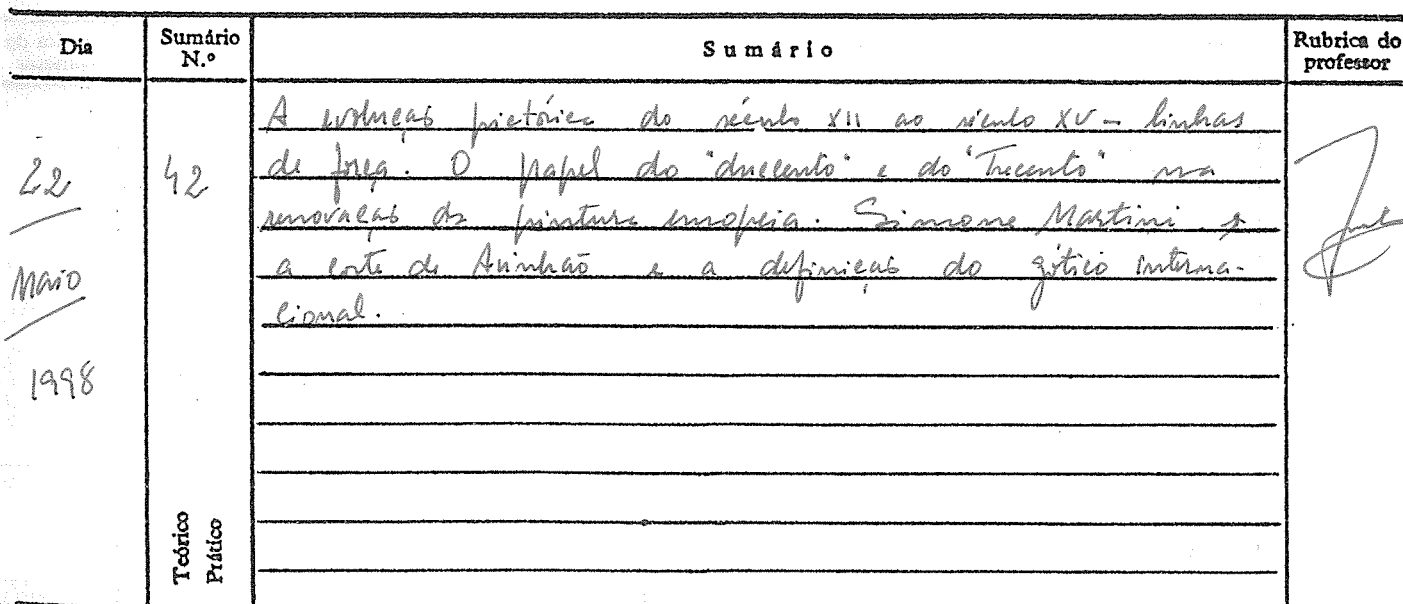 Dia
Sumário N.º
Sumário
Rubrica do professor
22
Maio
1998
42
A evolução pictórica do século XII ao século XV - linhas
de força. O papel do "duecento" e do "Trecento" na
renovação da pintura europeia. Simone Martini e
a corte de Avinhão e a definição do gótico interna-
cional.
Teórico
Prático